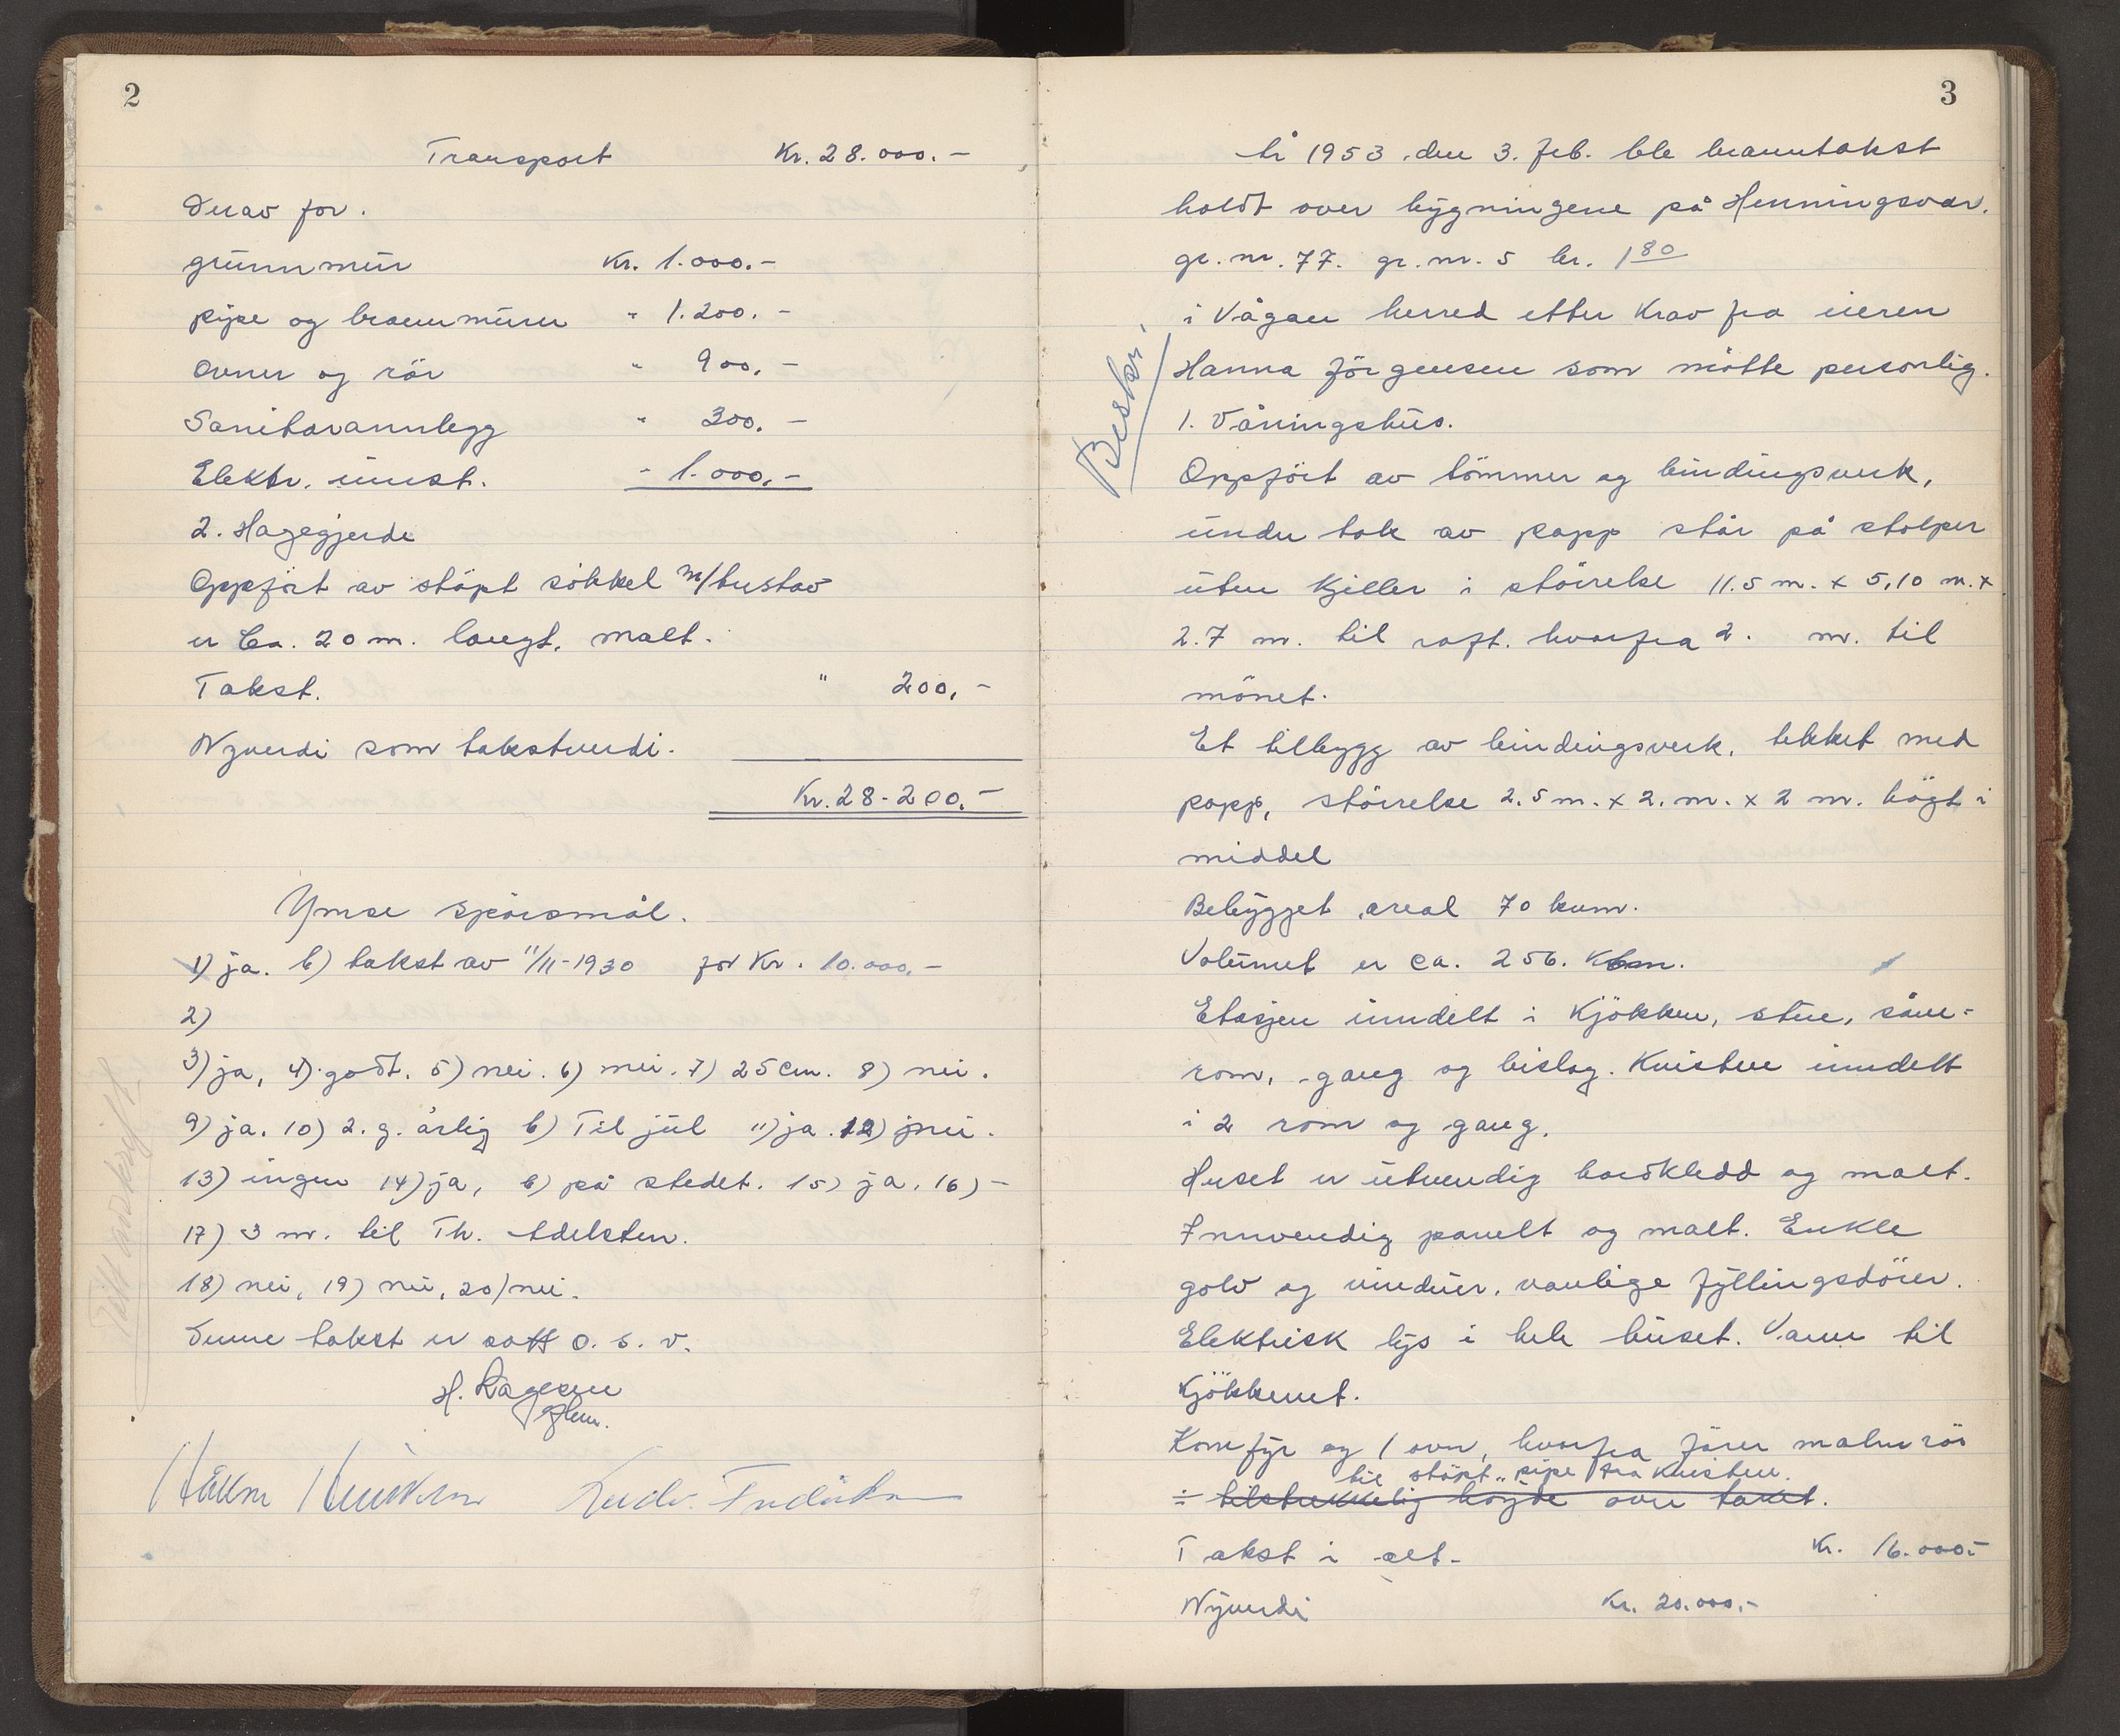 2
Transport Kr. 28.000.-
Derav for.
grunnmur Kr. 1.000.-
pipe og brannmurer " 1.200.-
Ovner og rör " 900.-
Sanitærannlegg " 300.-
Elektr. innst. - 1.000.-
2. Hagegjerde
Oppfört av stöpt sokkel m/bustav
er Ca. 20 m. langt. malt.
Takst. " 200,-
Nyverdi som takstverdi.
Kr. 28-200.-
Ymse spörsmål.
1) ja. b) takst av 11/11-1930 for Kr. 10.000.-
2)
3) ja, 4) godt. 5) nei. 6) nei. 7) 25 cm. 8) nei.
9) ja. 10) 2. g. årlig b) Til jul 11) ja. 12) nei.
13) ingen 14) ja, b) på stedet. 15) ja. 16) -
17) 3 m. til Th. Adelsten.
18) nei, 19) nei, 20) nei.
Denne takst er satt o. s. v.
H. Ragesen
Håkon
Ludv.
3
År 1953 den 3. feb. ble branntakst
holdt over bygningene på Henningsvær.
gr. nr. 77. gr. nr. 5 br. 180
i Vågan herred etter Krav fra eieren
Hanna Jörgensen som mötte personlig.
1. Våningshus.
Oppfört av tömmer og bindingsverk,
under tak av papp står på stolper
uten Kjeller i störrelse 11.5 m. x 5,10 m. x
2.7 m. til raft. hvorfra 2. m. til
mönet.
Et tilbygg av bindingsverk. tekket med
papp, störrelse 2.5 m. x 2. m. x 2 m. högt i
middel
Bebygget areal 70 kvm.
Volumet er ca. 256. Kbm.
Etasjen inndelt i Kjökken, stue, såve-
rom, gang og bislag. Kvisten inndelt
i 2 rom og gang.
Huset er utvendig bordkledd og malt.
Innvendig panelt og malt. Enkle
golv og vinduer, vanlige fyllingsdörer.
Elektrisk lys i hele huset. Vann til
Kjökkenet.
Komfyr og 1 ovn, hvorfra förer malmrör
til stöpt pipe fra Kvisten.
÷ tilstrekkelig höyde over taket.
Takst i alt. Kr. 16.000.-
Nyverdi Kr. 20.000.-